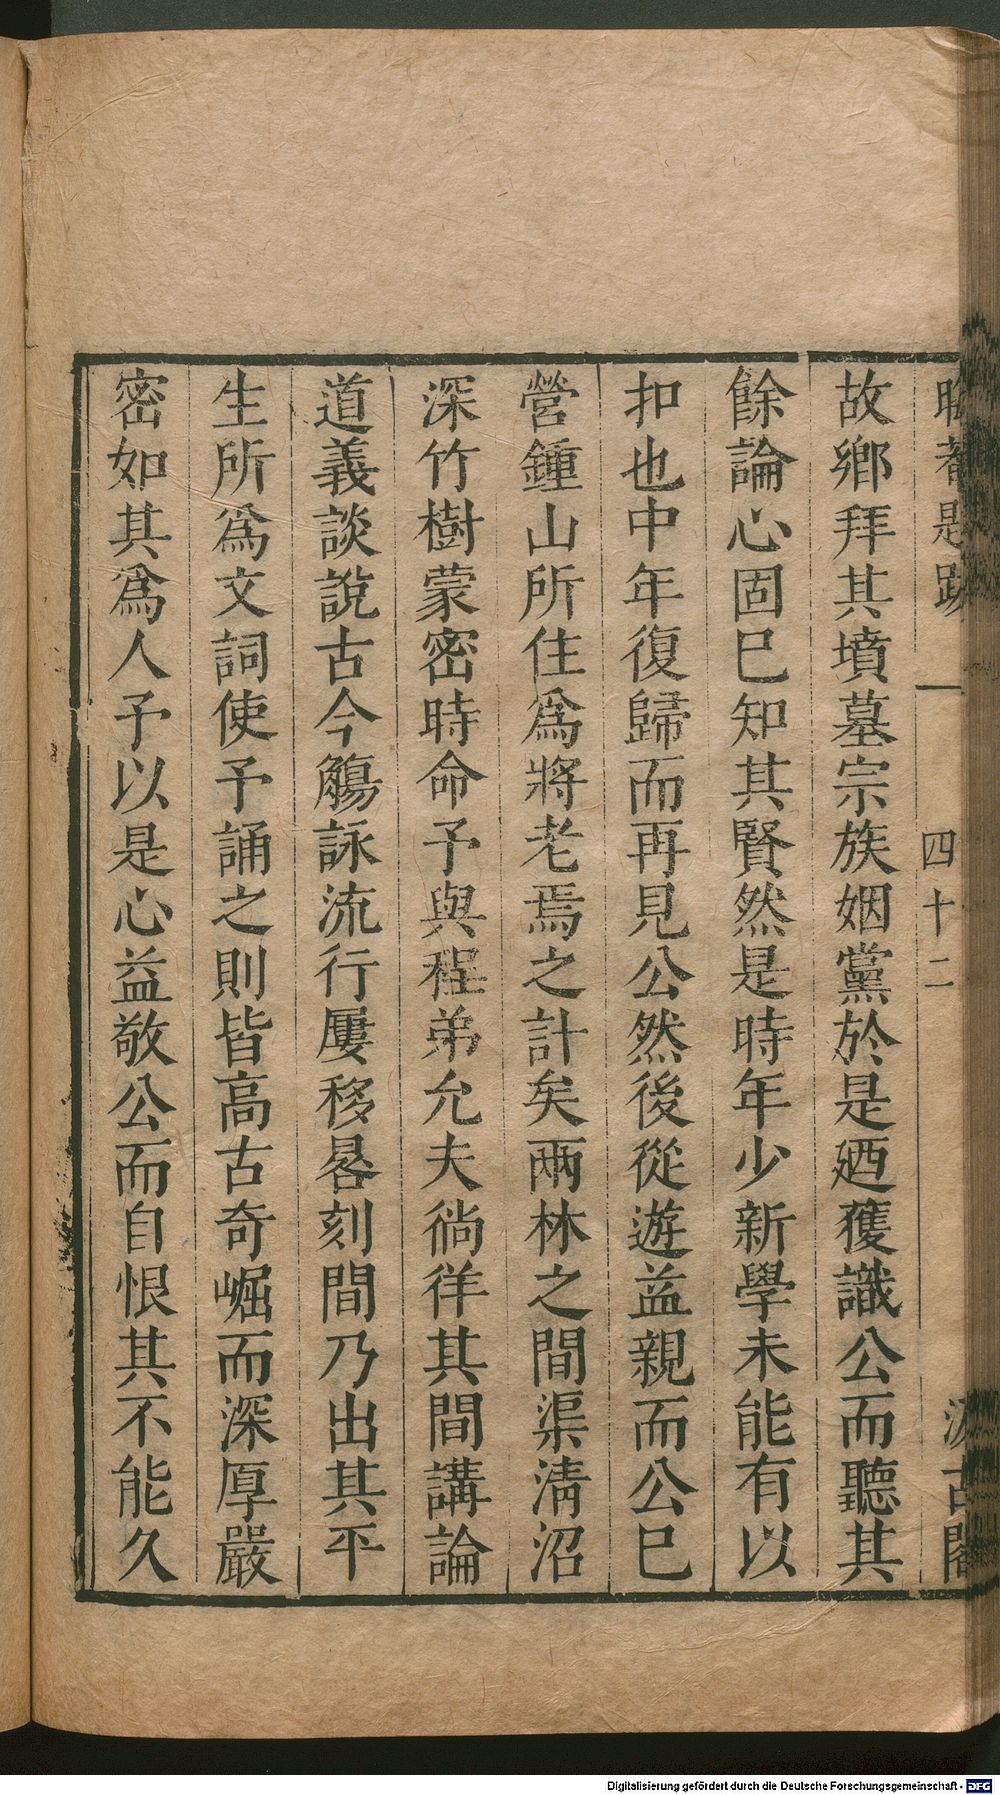 故鄉拜其墳墓宗族姻黨於是廼獲識公而聽其
餘論心固巳知其賢然是時年少新學未能有以
扣也中年復歸而再見公然後從遊益親而公巳
營鍾山所住爲將老焉之計矣兩林之間渠淸沼
深竹樹蒙密時命予與程弟允夫徜徉其間講論
道義談說古今觴詠流行屢移晷刻間乃出其平
生所爲文詞使予誦之則皆高古奇崛而深厚嚴
密如其爲人予以是心益敬公而自恨其不能久
是跋 一 四十二 汲古閣
Digitalisierung gefördert durch die Deutsche Forschungsgemeinschaft - DFG